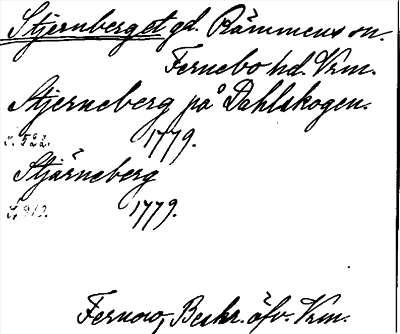 Stjernberget gd. Rämmens sn.
Fernebo hd. Vrm.
Stjerneberg på Dahlskogen.
s. 522. 1779.
Stjärneberg
1779.
Fernow, Beskr. öfv. Vrm.